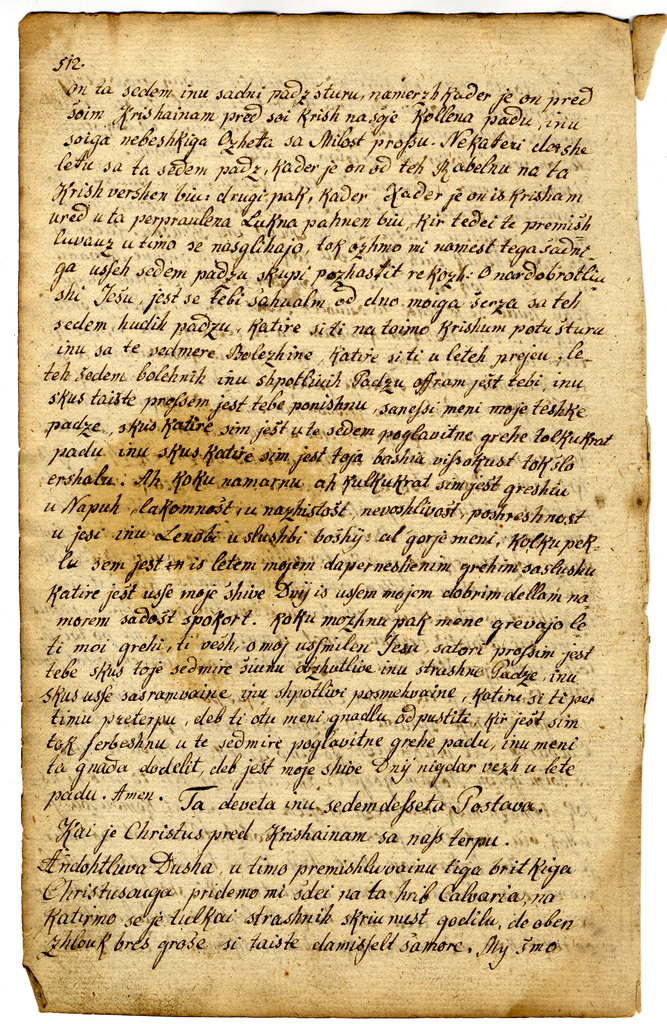 512.
on ta sedem inu sadni padz šturu, namerzh kader je on pred
šoim Krishainam pred soi Krish na šoje Kollena padu, inu
soiga nebeshkiga Ozheta sa Milost prossu. Nekateri dershe
letu sa ta sedem padz, kader je on od teh Rabelnu na ta
Krish vershen biu: drugi pak, kader Kader je on is krisham
ured u ta perpraulena Lukna pahnen biu, kir tedei te premish
luvauz u timo se nasglihajo, tok ozhmo mi namest tega šadni-
ga usseh sedem padzu skupi pozhastit rekozh: O nardobrotliu
shi Jesu, jest se Tebi šahualm od dno moiga šerza sa teh
sedem hudih padzu, katire si ti na toimo Krishum potu šturu
inu sa te sedmere Bolezhine, katire si ti u leteh prejeu; le-
teh sedem bolehnik inu shpotlivih Padzu offram jest tebi, inu
skus taiste prossem jest tebe ponishnu, sanessi meni moje teshke
padze, skus katire sim jest u te sedem poglavitne grehe tolkukrat
padu inu skus katire sim jest toja bashia vissokust tok šlo
ershalu. Ah koku namarnu ah kulkukrat sim jest greshiu
u Napuh, lakomnost, u nazhistost, nevoshlivost, poshreshnost
u jesi inu Lenobi u slushbi boshji: al gorje meni, kolku pek-
lu sem jest in is letem mojem dapernešhenim grehim saslushu
katire jest usse moje shive Dny is ussem mojem dobrim dellam na
morem sadost spokort. Koku mozhnu pak mene grevajo le
ti moi grehi, ti vesh, o moj ussmilen Jesu, satori prossim jest
tebe skus toje sedmire šiunu obzhutlive inu strashne Padze, inu
skus usse sasramvaine, inu shpotlivi posmehvaine, katiru si ti per
timu preterpu, deb ti otu meni gnadlu odpustiti, kir jest sim
tok ferbeshnu u te sedmire poglavitne grehe padu, inu meni
ta gnada dodelit, deb jest moje shive Dny nigdar vezh u lete
padu. Amen. Ta deveta inu sedemdesseta Postava.
Kai je Christus pred Krishainam sa nass terpu.
Andohtliva Dusha, u timo premishluvainu tiga britkiga
Christusouga pridemo mi šdei na ta hrib Calvaria, na
katirmo se je tulkai strashnih skriunust godilu, de oben
zhlouk bres grose si taiste damisselt šamore. My šmo